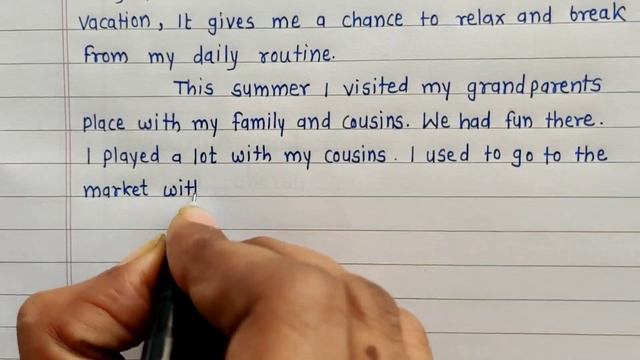 vacation, It gives me a chance to relax and break
from my daily routine.
This summer I visited my grandparents
place with my family and cousins. We had fun there.
I played a lot with my cousins. I used to go to the
market wit